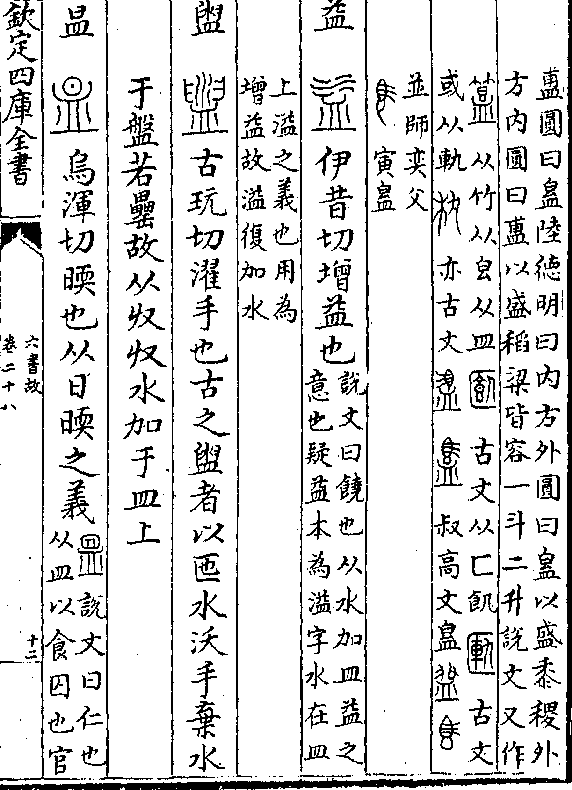 盙圓曰陸德明曰内方外圓曰以盛黍稷外
方内圓曰盙以盛稻粱皆容一斗二升説文又作
簋从竹从皀从皿古文从匚飢匭古文
或从軌朹亦古文叔高文
並師奕父
寅
益 益伊昔切增益也說文曰饒也从水加皿益之
意也疑益本為溢字水在皿
上溢之義也用為
增益故溢復加水
盥 盥古玩切濯手也古之盥者以匜水沃手棄水
于盤若罍故从収収水加于皿上
昷 昷烏渾切㬉也从日㬉之義說文曰仁也
从皿以食囚也官
欽定四庫全書
六書故
卷二十八
十二